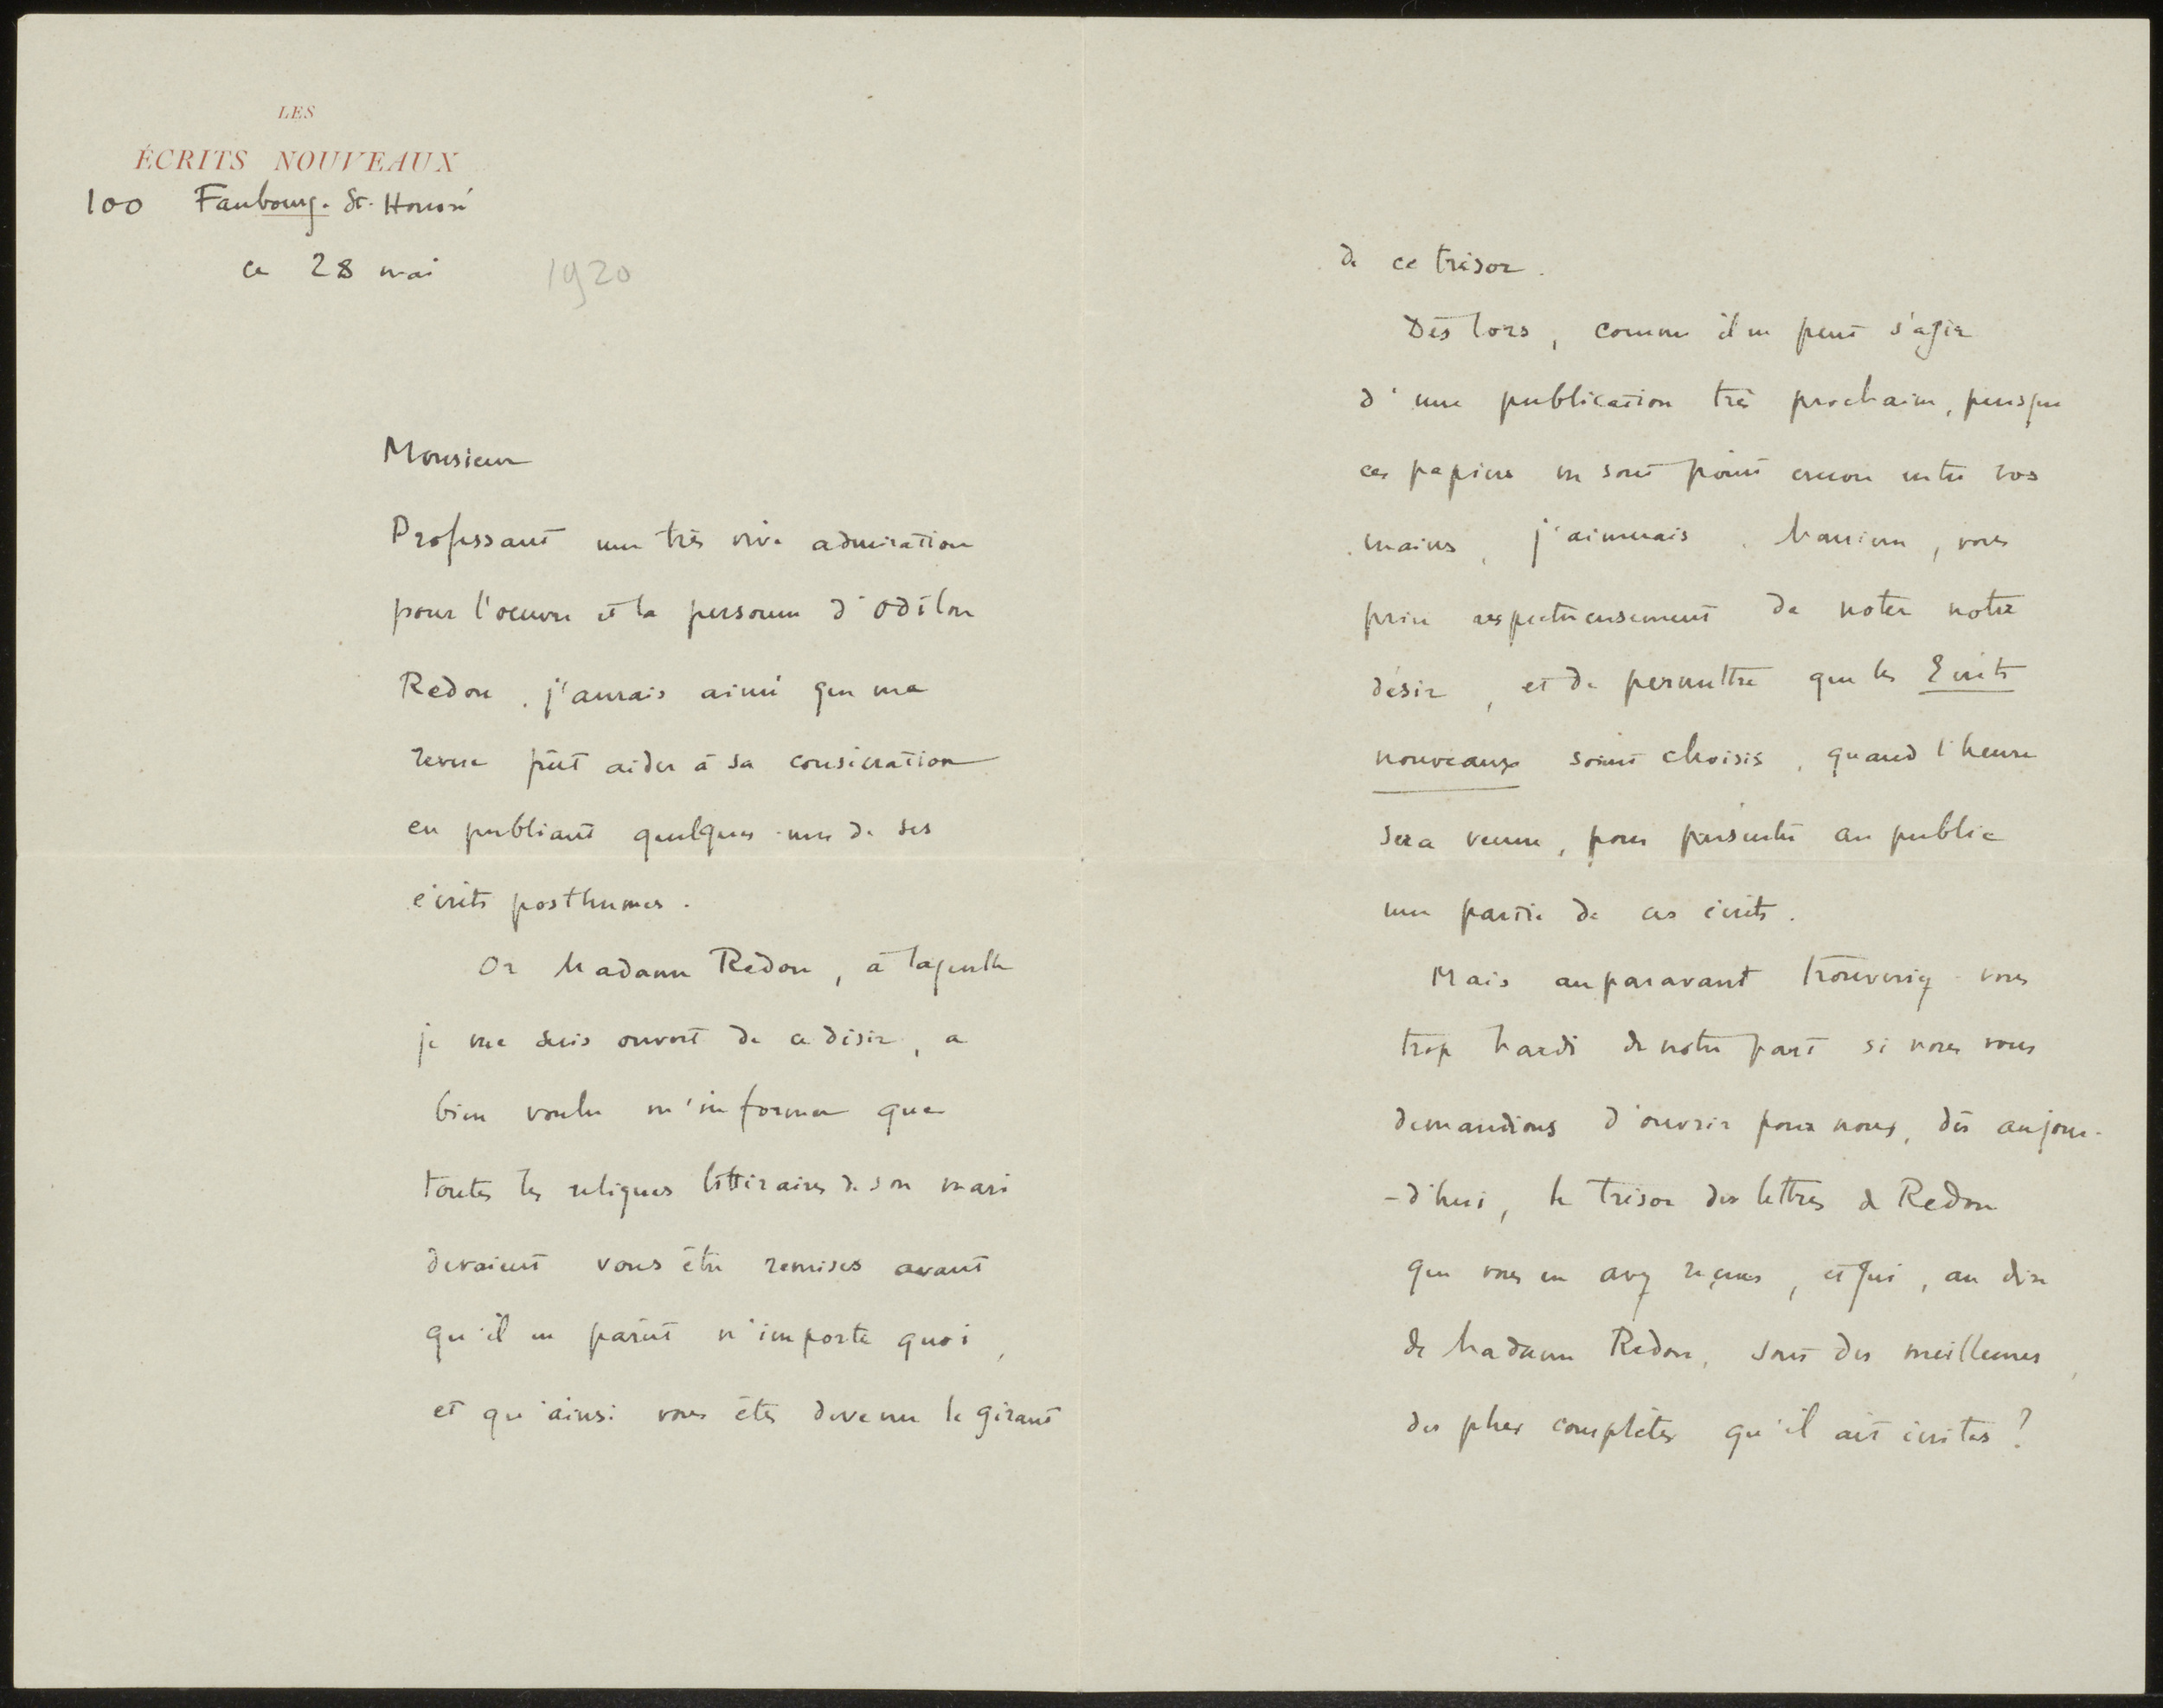 LES
ÉCRITS NOUVEAUX
100 Faubourg. St. Honoré
ce 28 mai 1920
Monsieur
Professant une très vive admiration
pour l'oeuvre et la personne d'Odilon
Redon, j'aurais aimé que ma
revue pût aider à sa consécration
en publiant quelques-uns de ses
écrits posthumes.
Or Madame Redon, à laquelle
je me suis ouvert de ce désir, a
bien voulu m'informer que
toutes les reliques littéraires de son mari
devaient vous être remises avant
qu'il en parût n'importe quoi,
et qu'ainsi vous êtes devenu le gérant
de ce trésor.
Dès lors, comme il ne peut s'agir
d'une publication très prochaine, puisque
ces papiers ne sont point encore entre vos
mains, j'aimerais, Monsieur, vous
prier respectueusement de noter notre
désir, et de permettre que les Ecrits
nouveaux soient choisis, quand l'heure
sera venue, pour présenter au public
une partie de ces écrits.
Mais auparavant trouveriez-vous
trop hardi de notre part si nous vous
demandions d'ouvrir pour nous, dès aujour-
-d'hui, le trésor des lettres de Redon
que vous en avez reçues, et qui, au dire
de Madame Redon, sont des meilleures,
des plus complètes qu'il ait écrites?